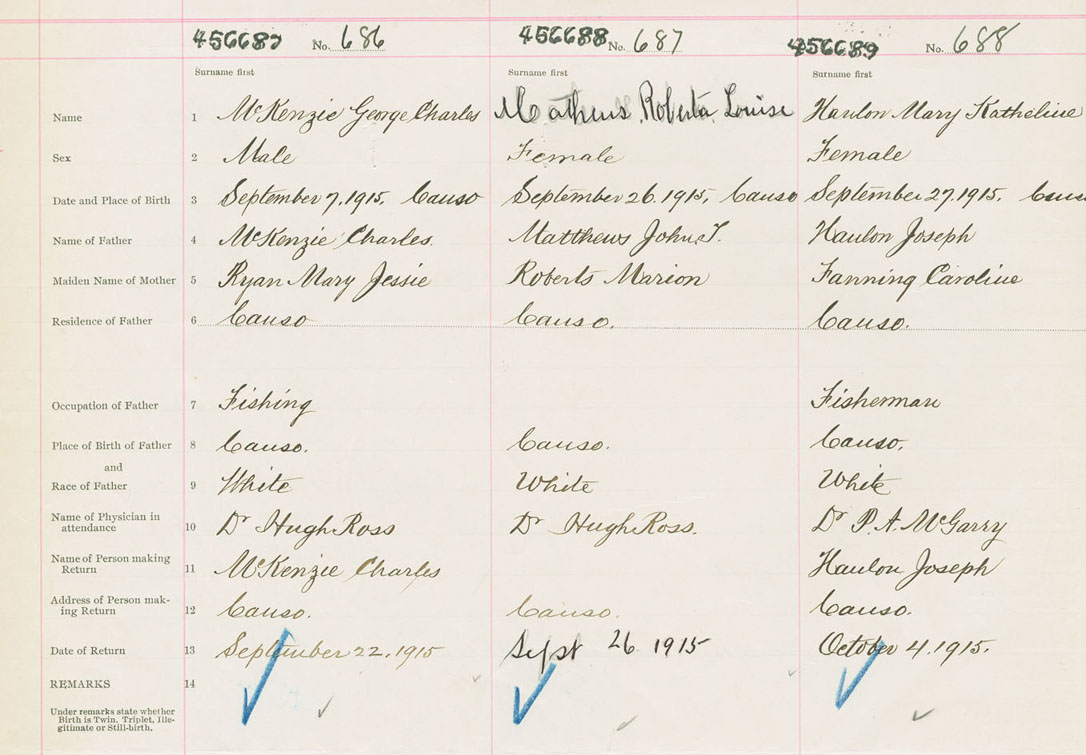 456687 No. 686 456688 No. 687 456689 No. 688
Surname first Surname first Surname first
Name 1 McKenzie George Charles Mathews Roberta Louise Hanlon Mary Katheline
Sex 2 Male Female Female
Date and Place of Birth 3 September 7, 1915, Canso September 26. 1915, Canso September 27. 1915, Canso
Name of Father 4 McKenzie Charles. Matthews John T. Hanlon Joseph
Maiden Name of Mother 5 Ryan Mary Jessie Roberts Marion Fanning Caroline
Residence of Father 6 Canso Canso. Canso.
Occupation of Father 7 Fishing Fisherman
Place of Birth of Father 8 Canso. Canso. Canso.
and
Race of Father 9 White White White
Name of Physician in
attendance 10 Dr Hugh Ross Dr Hugh Ross. Dr P. A. McGarry
Name of Person making
Return 11 McKenzie Charles Hanlon Joseph
Address of Person mak-
ing Return 12 Canso. Canso. Canso.
Date of Return 13 September 22, 1915 Sept 26 1915 October 4. 1915.
REMARKS 14
Under remarks state whether
Birth is Twin, Triplet, Ille-
gitimate or Still-birth.